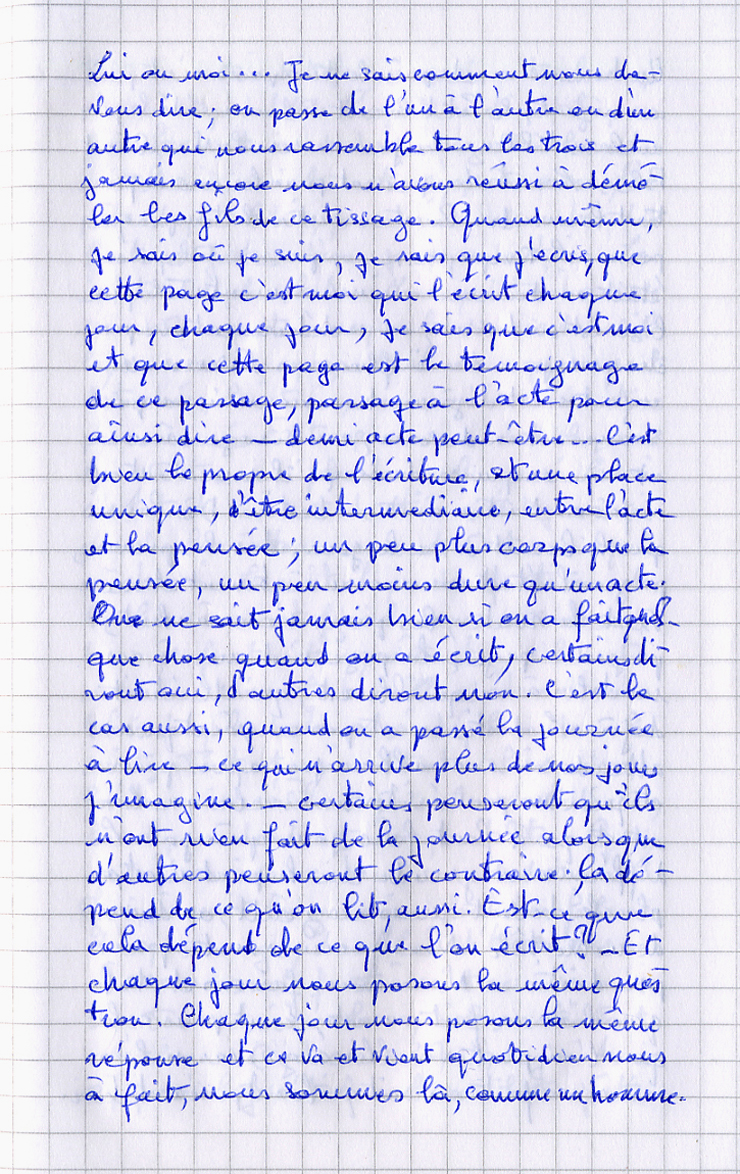 Lui ou moi... Je ne sais comment nous de-
vons dire; on passe de l'un à l'autre ou d'un
autre qui nous rassemble tous les trois et
jamais encore nous n'avons réussi à démê-
ler les fils de ce tissage. Quand même,
je sais où je suis, je sais que j'écris, que
cette page c'est moi qui l'écrit chaque
jour, chaque jour, je sais que c'est moi
et que cette page est le témoignage
de ce passage, passage à l'acte pour
ainsi dire — demi acte peut-être... C'est
bien le propre de l'écriture, et une place
unique, d'être intermédiaire, entre l'acte
et la pensée; un peu plus corps que la
pensée, un peu moins dure qu'un acte.
One ne sait jamais bien si on a fait quel-
que chose quand on a écrit, certains di
ront oui, d'autres diront non. C'est le
cas aussi, quand on a passé la journée
à lire — ce qui n'arrive plus de nos jours
j'imagine. — certains penseront qu'ils
n'ont rien fait de la journée alors que
d'autres penseront le contraire. ça dé-
pend de ce qu'on lit, aussi. Est-ce que
cela dépend de ce que l'on écrit? — Et
chaque jour nous posons la même ques
tion. Chaque jour nous posons la même
réponse et ce va et vient quotidien nous
a fait, nous sommes là, comme un homme.